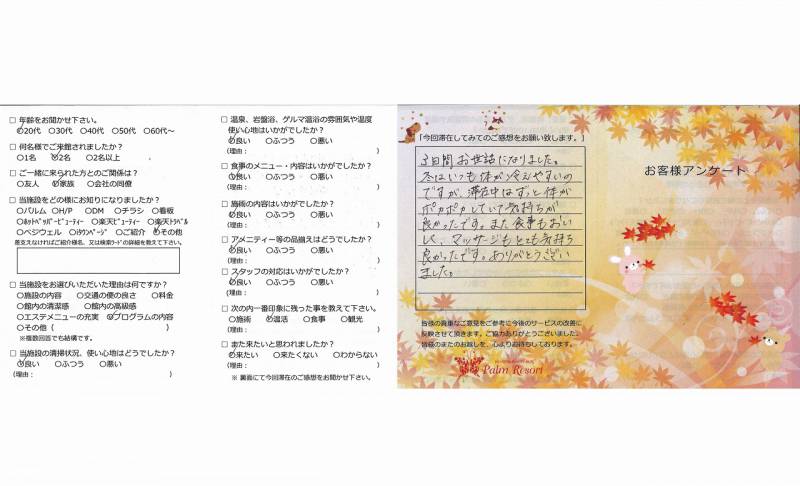 □ 年齢をお聞かせ下さい。
○20代 ○30代 ○40代 ○50代 ○60代～
□ 何名様でご来館されましたか?
○1名 ○2名 ○2名以上
□ ご一緒に来られた方とのご関係は?
○友人 ○家族 ○会社の同僚
□ 当施設をどの様にお知りになりましたか?
○パルム ○H/P ○DM ○チラシ ○看板
○ホットペッパービューティー ○楽天ビューティー ○楽天トラベル
○ベジウェル ○iタウンページ ○ご紹介 ○その他
差支えなければご紹介様名、又は検索ワードの詳細を教えて下さい。
□ 当施設をお選びいただいた理由は何ですか?
○施設の内容 ○交通の便の良さ ○料金
○館内の清潔感 ○館内の高級感
○エステメニューの充実 ○プログラムの内容
○その他 ( )
※複数回答でも結構です。
□ 当施設の清掃状況、使い心地はどうでしたか?
○良い ○ふつう ○悪い
(理由: )
□ 温泉、岩盤浴、ゲルマ温浴の雰囲気や温度
使い心地はいかがでしたか?
○良い ○ふつう ○悪い
(理由: )
□ 食事のメニュー・内容はいかがでしたか?
○良い ○ふつう ○悪い
(理由: )
□ 施術の内容はいかがでしたか?
○良い ○ふつう ○悪い
(理由: )
□ アメニティー等の品揃えはどうでしたか?
○良い ○ふつう ○悪い
(理由: )
□ スタッフの対応はいかがでしたか?
○良い ○ふつう ○悪い
(理由: )
□ 次の内一番印象に残った事を教えて下さい。
○施術 ○温活 ○食事 ○観光
(理由: )
□ また来たいと思われましたか?
○来たい ○来たくない ○わからない
(理由: )
※ 裏面にて今回滞在のご感想をお聞かせ下さい。
「今回滞在してみてのご感想をお願い致します。」
3日間お世話になりました。
冬はいつも体が冷えやすいの
ですが、滞在中はずっと体が
ポカポカしていて気持ちが
良かったです。また食事もおい
しく、マッサージもとても気持ち
良かったです。ありがとうござい
ました。
皆様の貴重なご意見をご参考に今後のサービスの改善に
反映させて頂きます。ご協力ありがとうございました。
皆様のまたのお越しを、心よりお待ちしております。
Palm Resort
お客様アンケート